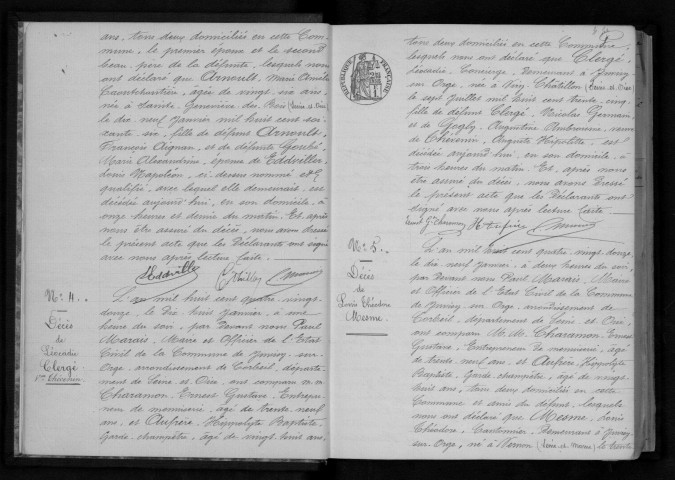 ans, tous deux domiciliés en cette Com-
mune, le premier époux et le second
beau-père de la défunte, lesquels nous
ont déclaré que Arnoult, Marie Amélie
âgée de vingt six ans,
née à Sainte Geneviève des Bois (Seine et Oise)
le dix neuf Janvier mil huit cent soi-
xante six, fille de défunt Arnoult,
François Aignan, et de défunte
Marie Alexandrine, épouse de Eddviller,
Louis Napoléon, ci-dessus nommé et
qualifié, avec lequel elle demeurait, est
décédée aujourd'hui, en son domicile, à
onze heures et demie du matin. Et après
nous être assuré du décès, nous avons dressé
le présent acte que les Déclarants ont signé
avec nous après lecture faite.
Eddviller
No. 4.
Décès
de
Léocadie
Clergé
Vve Chéceneau
L'an mil huit cent quatre vingt
douze, le dix huit Janvier, à une
heure du soir, par devant nous Paul
Marais, Maire et Officier de l'Etat
Civil de la Commune de Juvisy-sur-
Orge arrondissement de Corbeil, départe-
ment de Seine et Oise, ont comparu
Charamon, Ernest Gustave, Entrepre-
neur de menuiserie, âgé de trente neuf
ans et Aufrère, Hippolyte Baptiste,
Garde champêtre, âgé de vingt huit ans,
REPUBLIQUE FRANÇAISE
tous deux domiciliés en cette Commune,
lesquels nous ont déclaré que Clergé,
Léocadie, Concierge, demeurant à Juvisy
sur Orge, née à Viry-Châtillon (Seine et Oise)
le sept Juillet mil huit cent trente cinq,
fille de défunt Clergé, Nicolas Germain,
et de Augustine Ambroisine, veuve
de Auguste Hippolyte, est
décédée aujourd'hui, en son domicile, à
trois heures du matin. Et, après nous
être assuré du décès, nous avons dressé
le présent acte que les Déclarants ont
signé avec nous après lecture faite.
No. 5.
Décès
de
Louis Théodore
Mesme.
L'an mil huit cent quatre-vingt-douze,
le dix neuf Janvier, à deux heures du soir,
par devant nous Paul Marais, Maire
et Officier de l'Etat Civil de la Commune
de Juvisy sur Orge, arrondissement de
Corbeil, département de Seine et Oise,
ont comparu M.M. Charamon, Ernest
Gustave, Entrepreneur de menuiserie, âgé
de trente neuf ans et Aufrère, Hippolyte
Baptiste, Garde champêtre, âgé de vingt
huit ans, tous deux domiciliés en cette
Commune et amis du défunt, lesquels
nous ont déclaré que Mesme, Louis
Théodore, Cantonnier, demeurant à Juvisy
sur Orge, né à (Seine et Marne) le trente